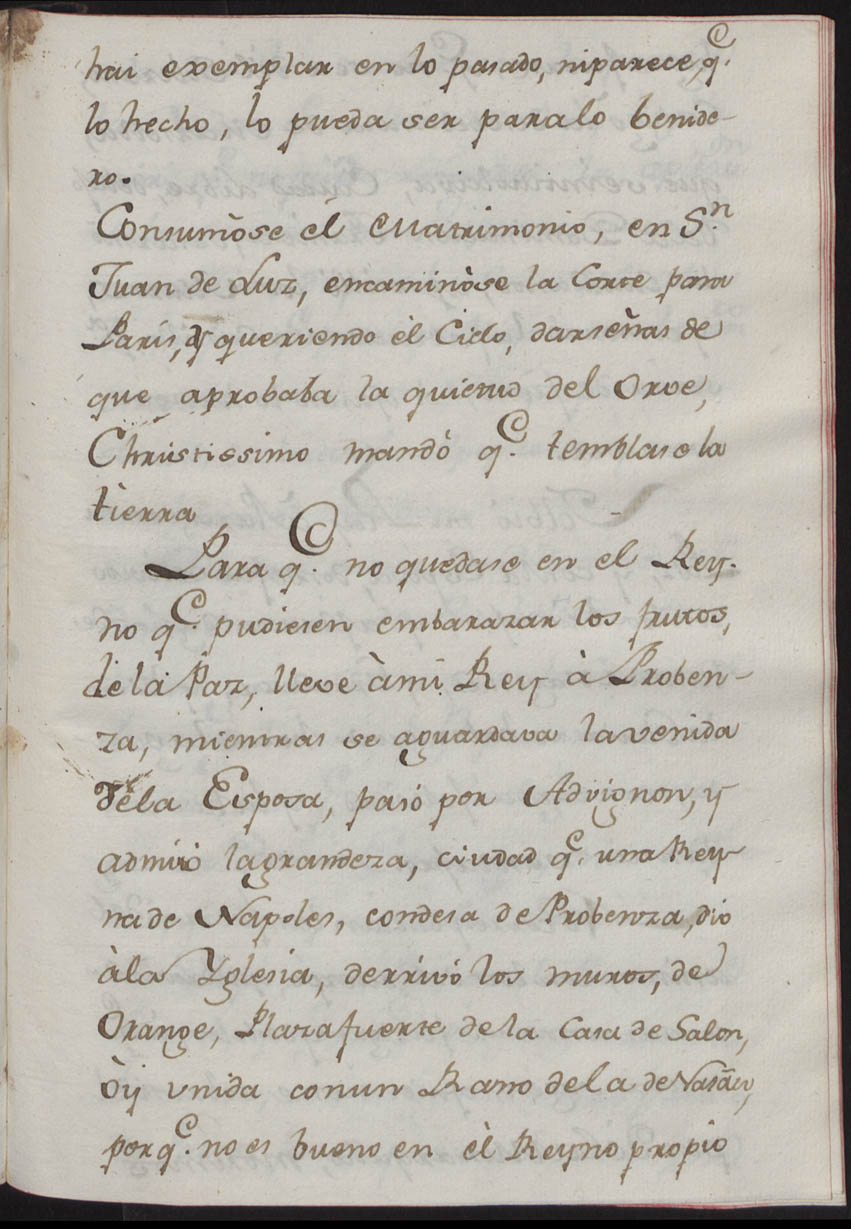 hai exemplar en lo pasado, niparece q.e
lo hecho, lo pueda ser paralo benide-
ro.
Consumòse él Matrimonio, en S.n
Juan de Luz, encaminòse la Corte para
París, y queriendo èl Cielo, darseñas de
que aprobaba la quietud del Orve,
Christiesimo mandò q.e temblase la
tìerra
Para q.e no quedase en el Rey-
no q.e pudiesen embarazar los frutos,
de la Paz, lleve àmi Rey à Proben-
za, mientras se aguardava lavenida
dela Esposa, pasó por Advignon, y
admiró lagrandeza, ciudad q.e una Rey
na de Napoles, condesa de Probenza, dio
àla Yglesia, derrivó los muros, de
Orange, Plazafuerte de la Casa de Salon,
òy vnida conun Ramo dela de Nasau,
porq.e no es bueno en èl Reyno propio